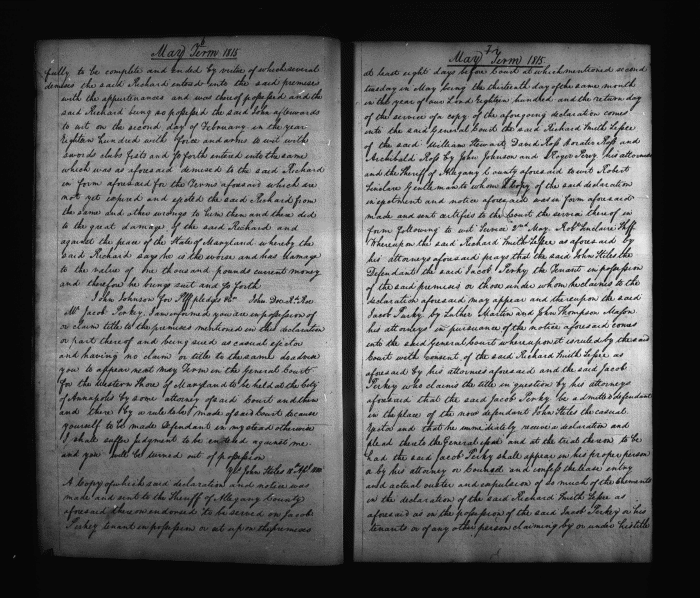 May Term 1815
fully to be complete and ended by virtue of which several
demises the said Richard entered into the said premises
with the appurtenances and was thereof possessed and the
said Richard being so possessed the said John afterwards
to wit on the second day of February in the year
eighteen hundred with force and arms to wit with
swords clubs fists and so forth entered into the same
which was as aforesaid demised to the said Richard
in form aforesaid for the Terms aforesaid which are
not yet expired and ejected the said Richard from
the same and other wrongs to him then and there did
to the great damage of the said Richard and
against the peace of the State of Maryland whereby the
said Richard says he is the worse and has damage
to the value of one thousand pounds current money
and therefore he brings suit and so forth
John Johnson for Plff pledges &c John Doe & Rd Roe
Mr Jacob Perkey, I am informed you are in possession of
or claim title to the premises mentioned in this declaration
or part thereof and being sued as casual ejector
and having no claim or title to the same do advise
you to appear next May Term in the General Court
for the western shore of Maryland to be held at the City
of Annapolis by some attorney of said Court and then
and there by a rule to be made of said Court to cause
yourself to be made Defendant in my stead otherwise
I shall suffer judgment to be entered against me
and you will be turned out of possession
John Stiles
A Copy of which said declaration and notice was
made and sent to the Sheriff of Allegany County
aforesaid thereon endorsed to be served on Jacob
Perkey tenant in possession or set up on the premises
May Term 1815
at least eight days before Court at which mentioned second
tuesday in May being the thirteenth day of the same month
in the year of our Lord eighteen hundred and the return day
of the service of a copy of the aforegoing declaration comes
into the said General Court the said Richard Smith Lessee
of the said William Stewart David Ross Horatio Ross and
Archibald Ross by John Johnson and Roger Perry his attornies
and the Sheriff of Allegany County aforesaid to wit Robert
Sinclare Gentleman to whom a copy of the said declaration
in ejectment and notice aforesaid was in form aforesaid
made and sent certifies to the Court the service thereof in
form following to wit Served 2nd May. Robt Sinclaire Shff
Whereupon the said Richard Smith Lessee as aforesaid by
his attornies aforesaid prays that the said John Stiles the
Defendant the said Jacob Perky the Tenant in possession
of the said premises or those under whom he claims to the
declaration aforesaid may appear and thereupon the said
Jacob Perky by Luther Martin and John Thompson Mason
his attornies in pursuance of the notice aforesaid comes
into the said General Court whereupon it is ruled by the said
Court with consent of the said Richard Smith Lessee as
aforesaid by his attornies aforesaid and the said Jacob
Perkey who claims the title in question by his attornies
aforesaid that the said Jacob Perky be admitted defendant
in the place of the now defendant John Stiles the casual
Ejector and that he immediately receive a declaration and
plead thereto the General issue and at the trial thereon to be
had the said Jacob Perky shall appear in his proper person
or by his attorney or Counsel and confess the lease entry
and actual ouster and expulsion of so much of the tenements
in the declaration of the said Richard Smith Lessee as
aforesaid as in the possession of the said Jacob Perkey or his
tenants or of any other person claiming by or under his title